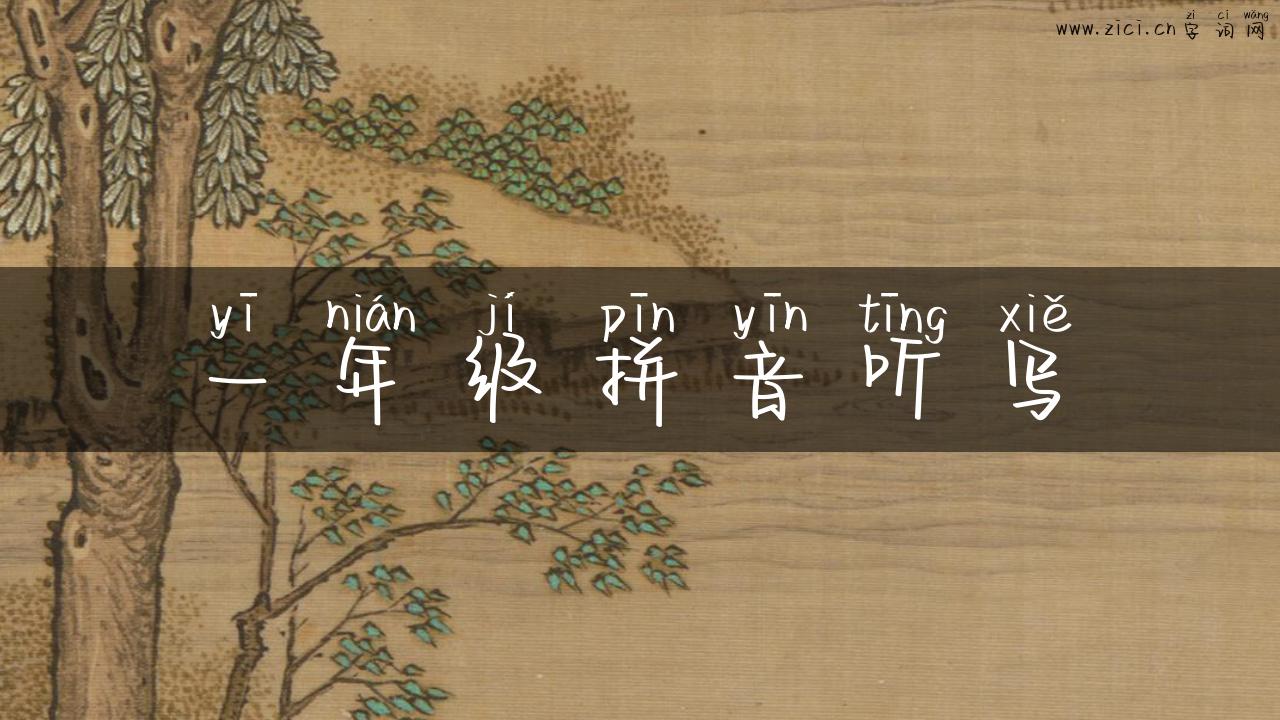 zì cí wǎng
www.zici.cn 字词网
yī nián jí pīn yīn tīng xiě
一年级拼音听写